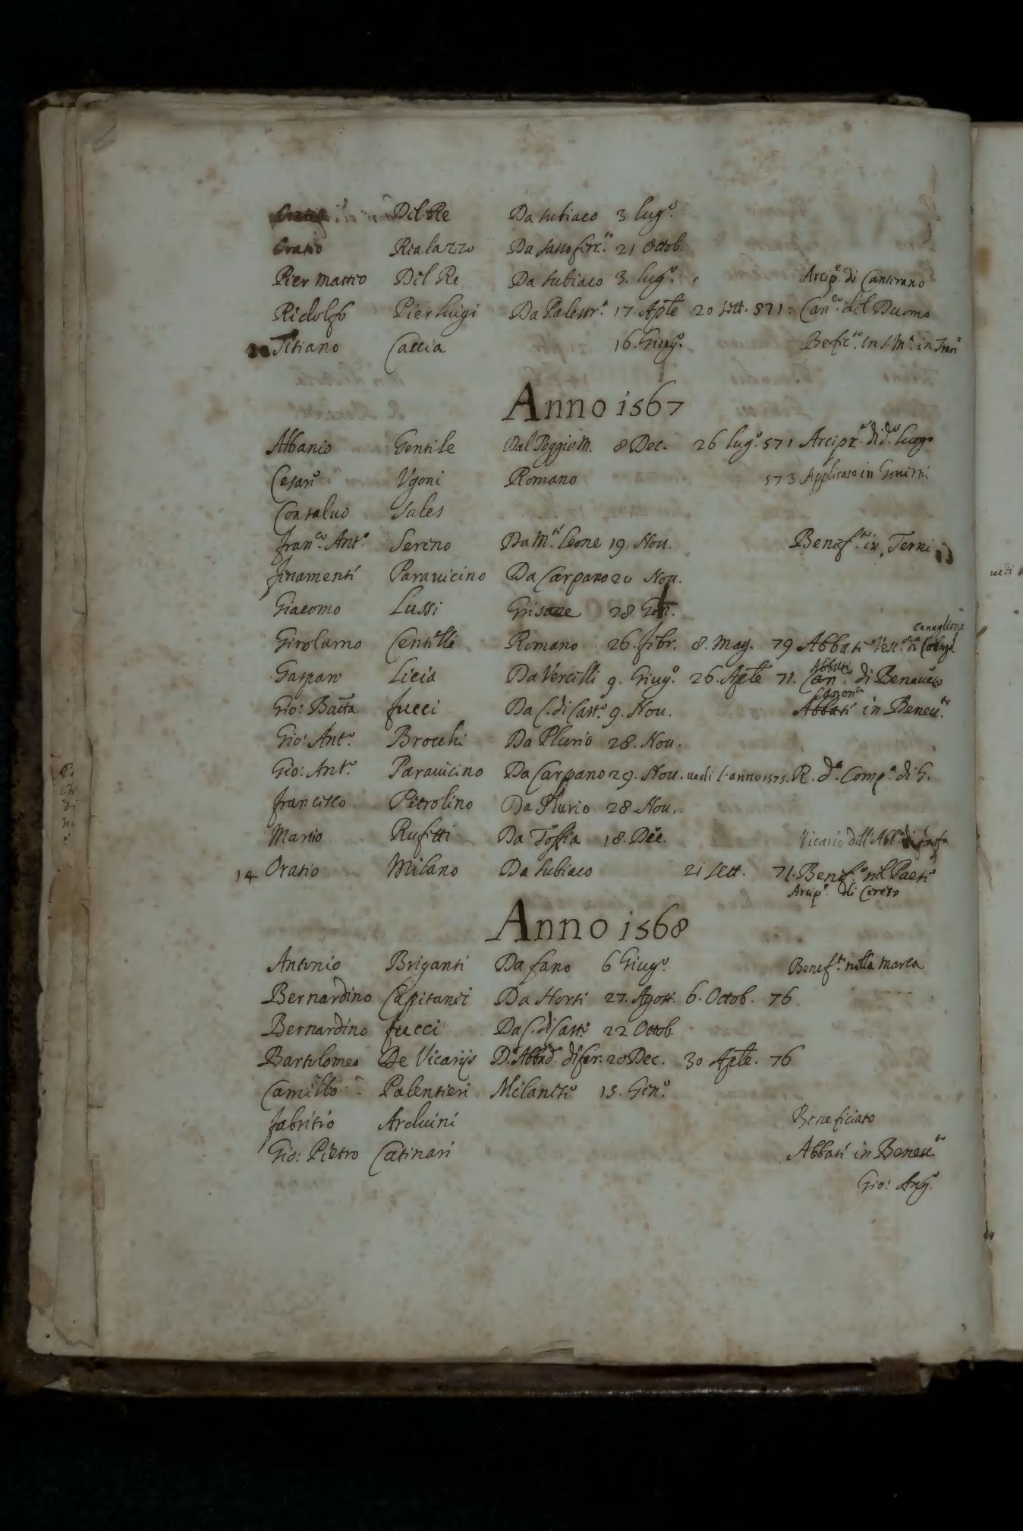 Del Re Da Subiaco 3 lug.º
Oratio Rialazzo Da Sassoferr.to 21 Ottob.
Pier Matteo Del Re Da Subiaco 3. lug.º Arcip.e di Canterano
Ridolfo Pierluigi Da Palestr.a 17 Aple 20 Sett. 571. Can.co del Duomo
20 Titiano Caccia 16. Giug.º Benfic.to in S. M.a in Tran.
Anno 1567
Abbanio Gentile Dal Poggio M. 8 Dec. 26 lug.º 571 Arcipr.e di d.º luogo
Cesare Vgoni Romano 573 Applicato in Governi
Consaluo Sales
fran.co Ant.º Sereno Da M.te Leone 19. Nou. Benef.to in Terni
finamente Parauicino Da Carpano 20 Nou.
Giacomo Lussi Grisone 28
Girolamo Centelli Romano 26. febr. 8. Mag. 79 Abbate Vesc.º di
Gaspare Licia Da Vercelli 9. Giug.º 26. Aple 71. Can.co di Beneuēto
Gio: Batta fucci Da C. di Cast.º 9. Nou. Abbate in Beneu.to
Canon.co
Gio: Ant.º Brocchi Da Plurio 28. Nou.
Gio: Ant.º Parauicino Da Carpano 29. Nou. uedi l'anno 1575. R. d.a Comp.a di G.
francesco Pietrolino Da Plurio 28 Nou.
Mario Rufetti Da Toffia 18. Dec. Vicario dell'Abb.a di farfa
14 Oratio Milano Da Subiaco 21 Sett. 71. Benef.to nel Paese
Arcip.e di Cereto
Anno 1568
Antonio Briganti Da fano 6 Giug.º Benef.to nella Marca
Bernardino Capitanei Da Horti 27. Agost. 6. Ottob. 76
Bernardino fucci Da C. di Cast.º 22 Ottob.
Bartolomeo De Vicarijs D. Abbad. di fer. 20 Dec. 30 Aple. 76
Camillo Palentieri Milanese 15. Gen.º
fabritio Arduini Beneficiato
Gio: Pietro Catinari Abbate in Beneu.to
Gio: Ang.º